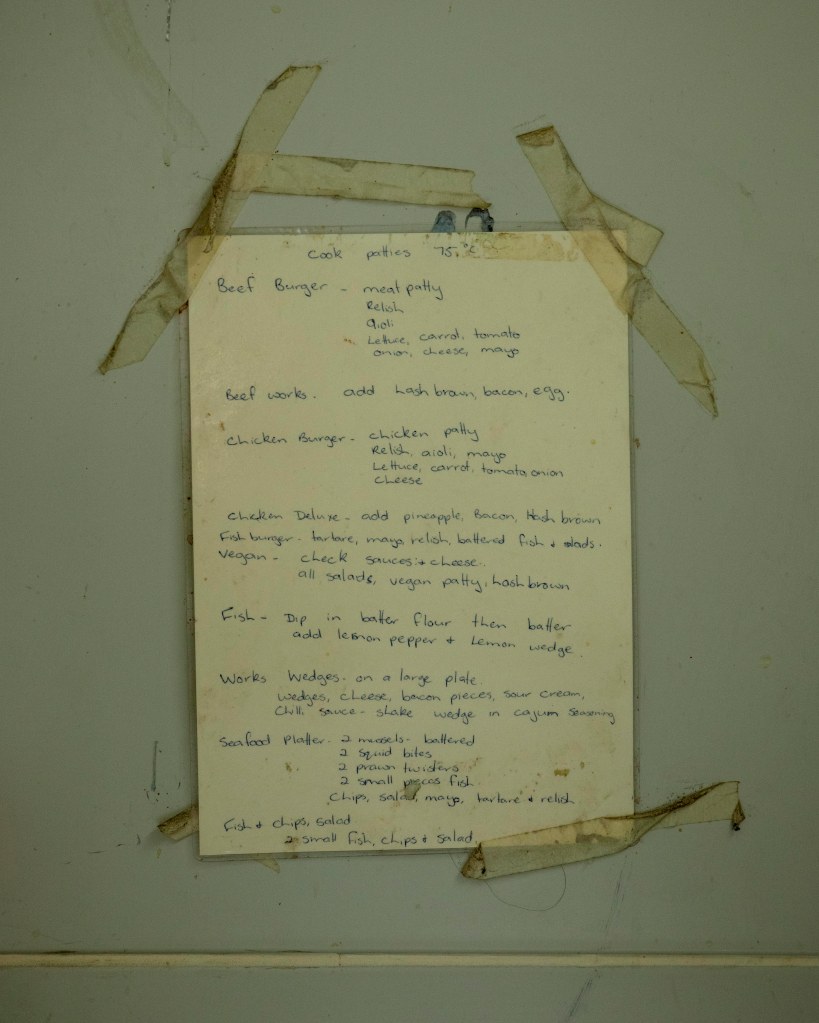 Cook patties 75°C
Beef Burger - meat patty
Relish
aioli
Lettuce, carrot, tomato
onion, cheese, mayo
Beef works. add hash brown, bacon, egg.
Chicken Burger - chicken patty
Relish, aioli, mayo
Lettuce, carrot, tomato, onion
cheese
Chicken Deluxe - add pineapple, Bacon, Hash brown
Fish burger - tartare, mayo relish, battered fish + salads.
Vegan - check sauces + cheese.
all salads, vegan patty, hash brown
Fish - Dip in batter flour then batter
add lemon pepper + Lemon wedge
Works Wedges - on a large plate.
wedges, cheese, bacon pieces, sour cream,
Chilli sauce - shake wedge in cajum seasoning
Seafood Platter - 2 mussels - battered
2 squid bites
2 prawn twisters
2 small pieces fish
Chips, salad, mayo, tartare + relish
Fish + chips, salad
2 small fish, chips + salad